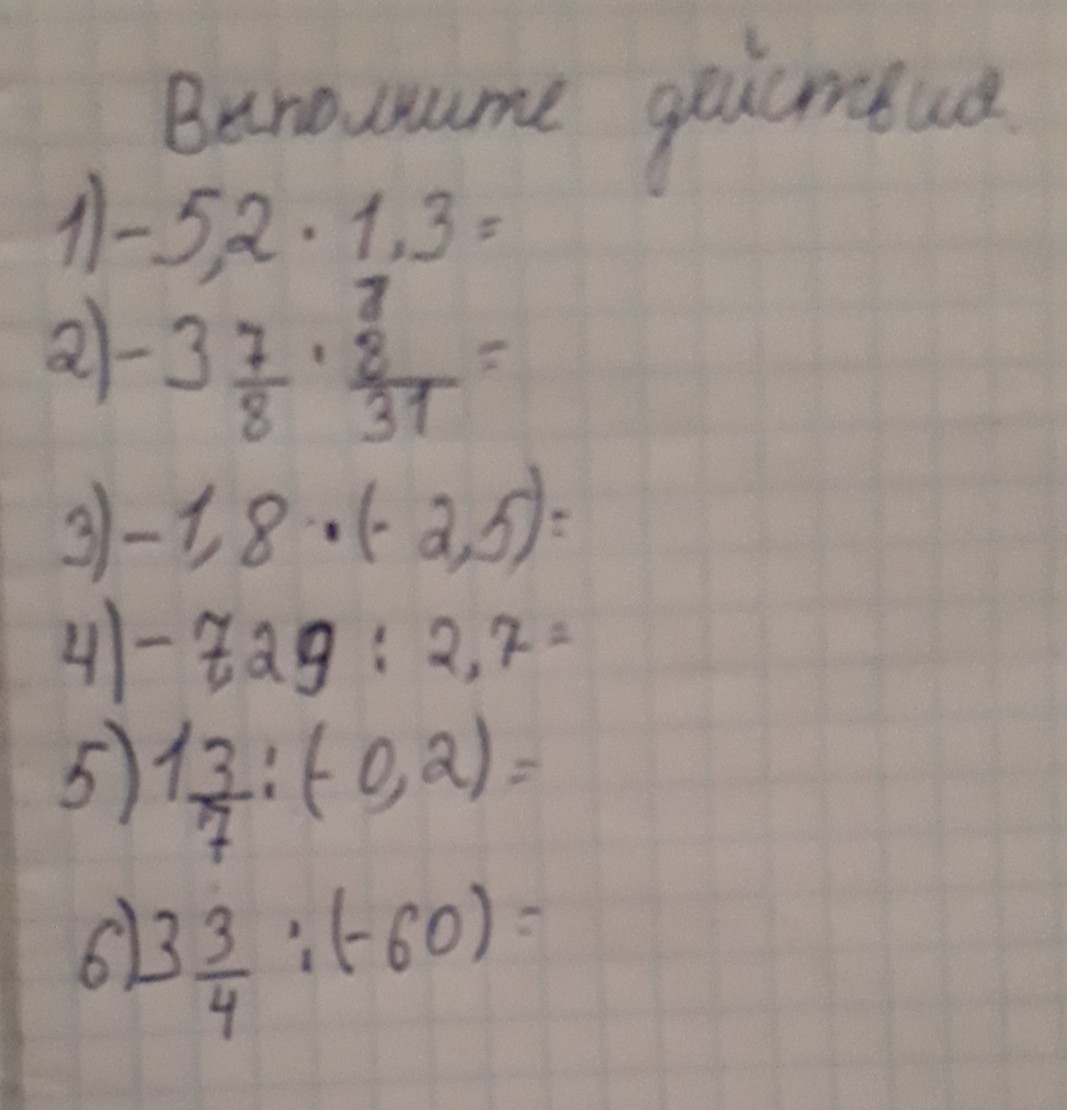 Выполните действия.
1) - 5,2 · 1,3 =
2) - 3 7/8 · 8/31 =
3) - 1,8 · (- 2,5) =
4) - 729 : 2,7 =
5) 1 3/7 : (- 0,2) =
6) 3 3/4 : (- 60) =